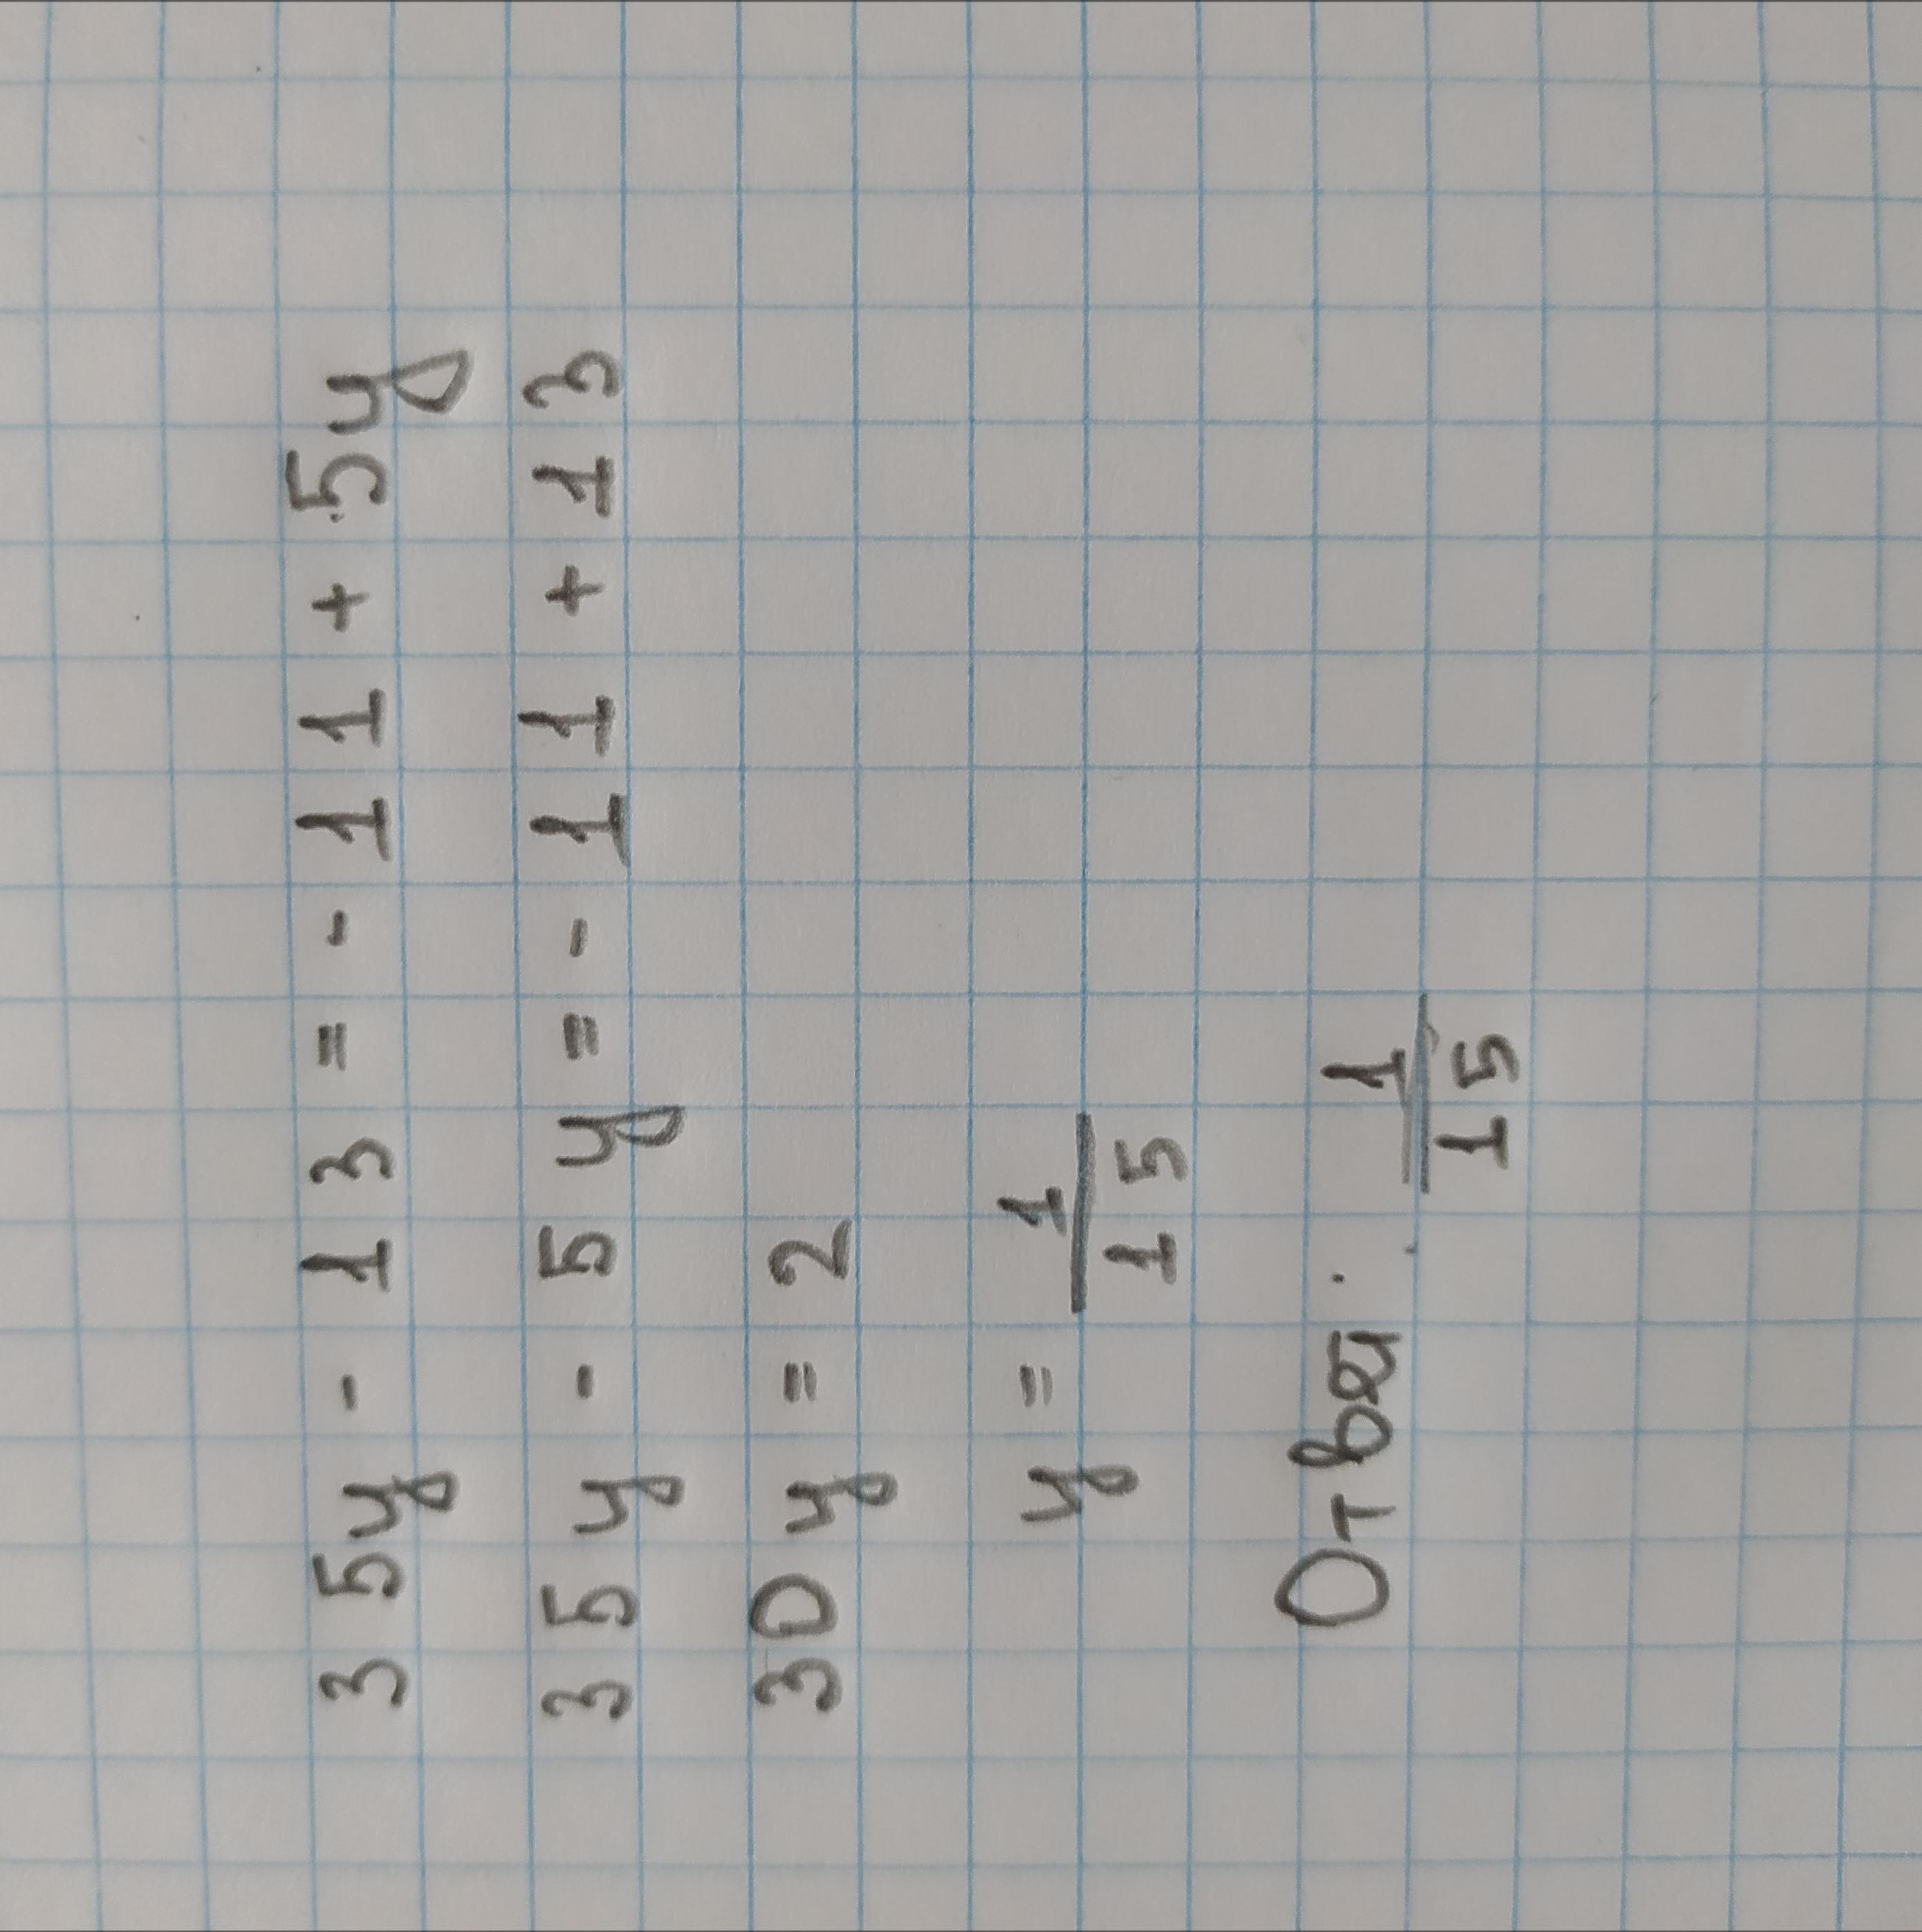 35y - 13 = - 11 + 5y
35y - 5y = - 11 + 13
30y = 2
y = 1/15
Ответ: 1/15